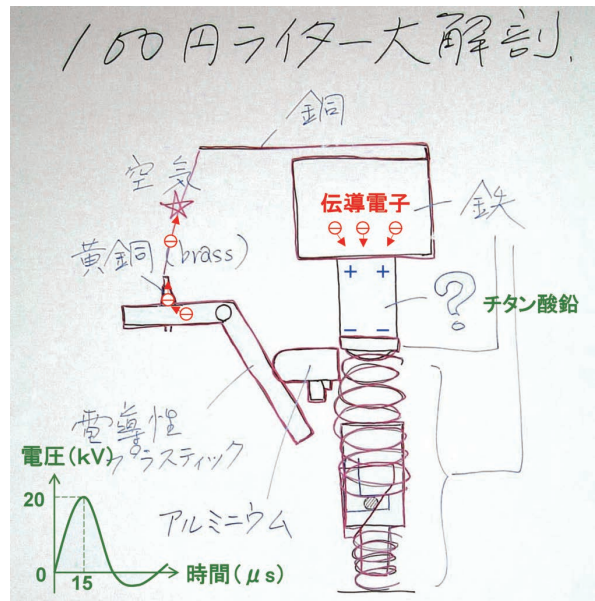 100円ライター大解剖.
銅
空気
伝導電子
鉄
黄銅(brass)
?
チタン酸鉛
電導性
プラスティック
アルミニウム
電圧(kV)
20
0
15
時間(μs)